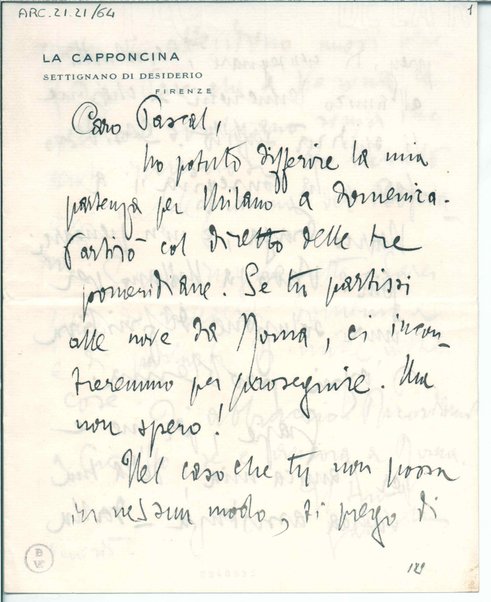 ARC.21.21/64
1
LA CAPPONCINA
SETTIGNANO DI DESIDERIO
FIRENZE
Caro Pascal,
ho potuto differire la mia
partenza per Milano a domenica.
Partirò col diretto delle tre
pomeridiane. Se tu partissi
alle nove da Roma, ci incon-
treremmo per proseguire. Ma
non spero!
Nel caso che tu non possa
in nessun modo, ti prego di
129